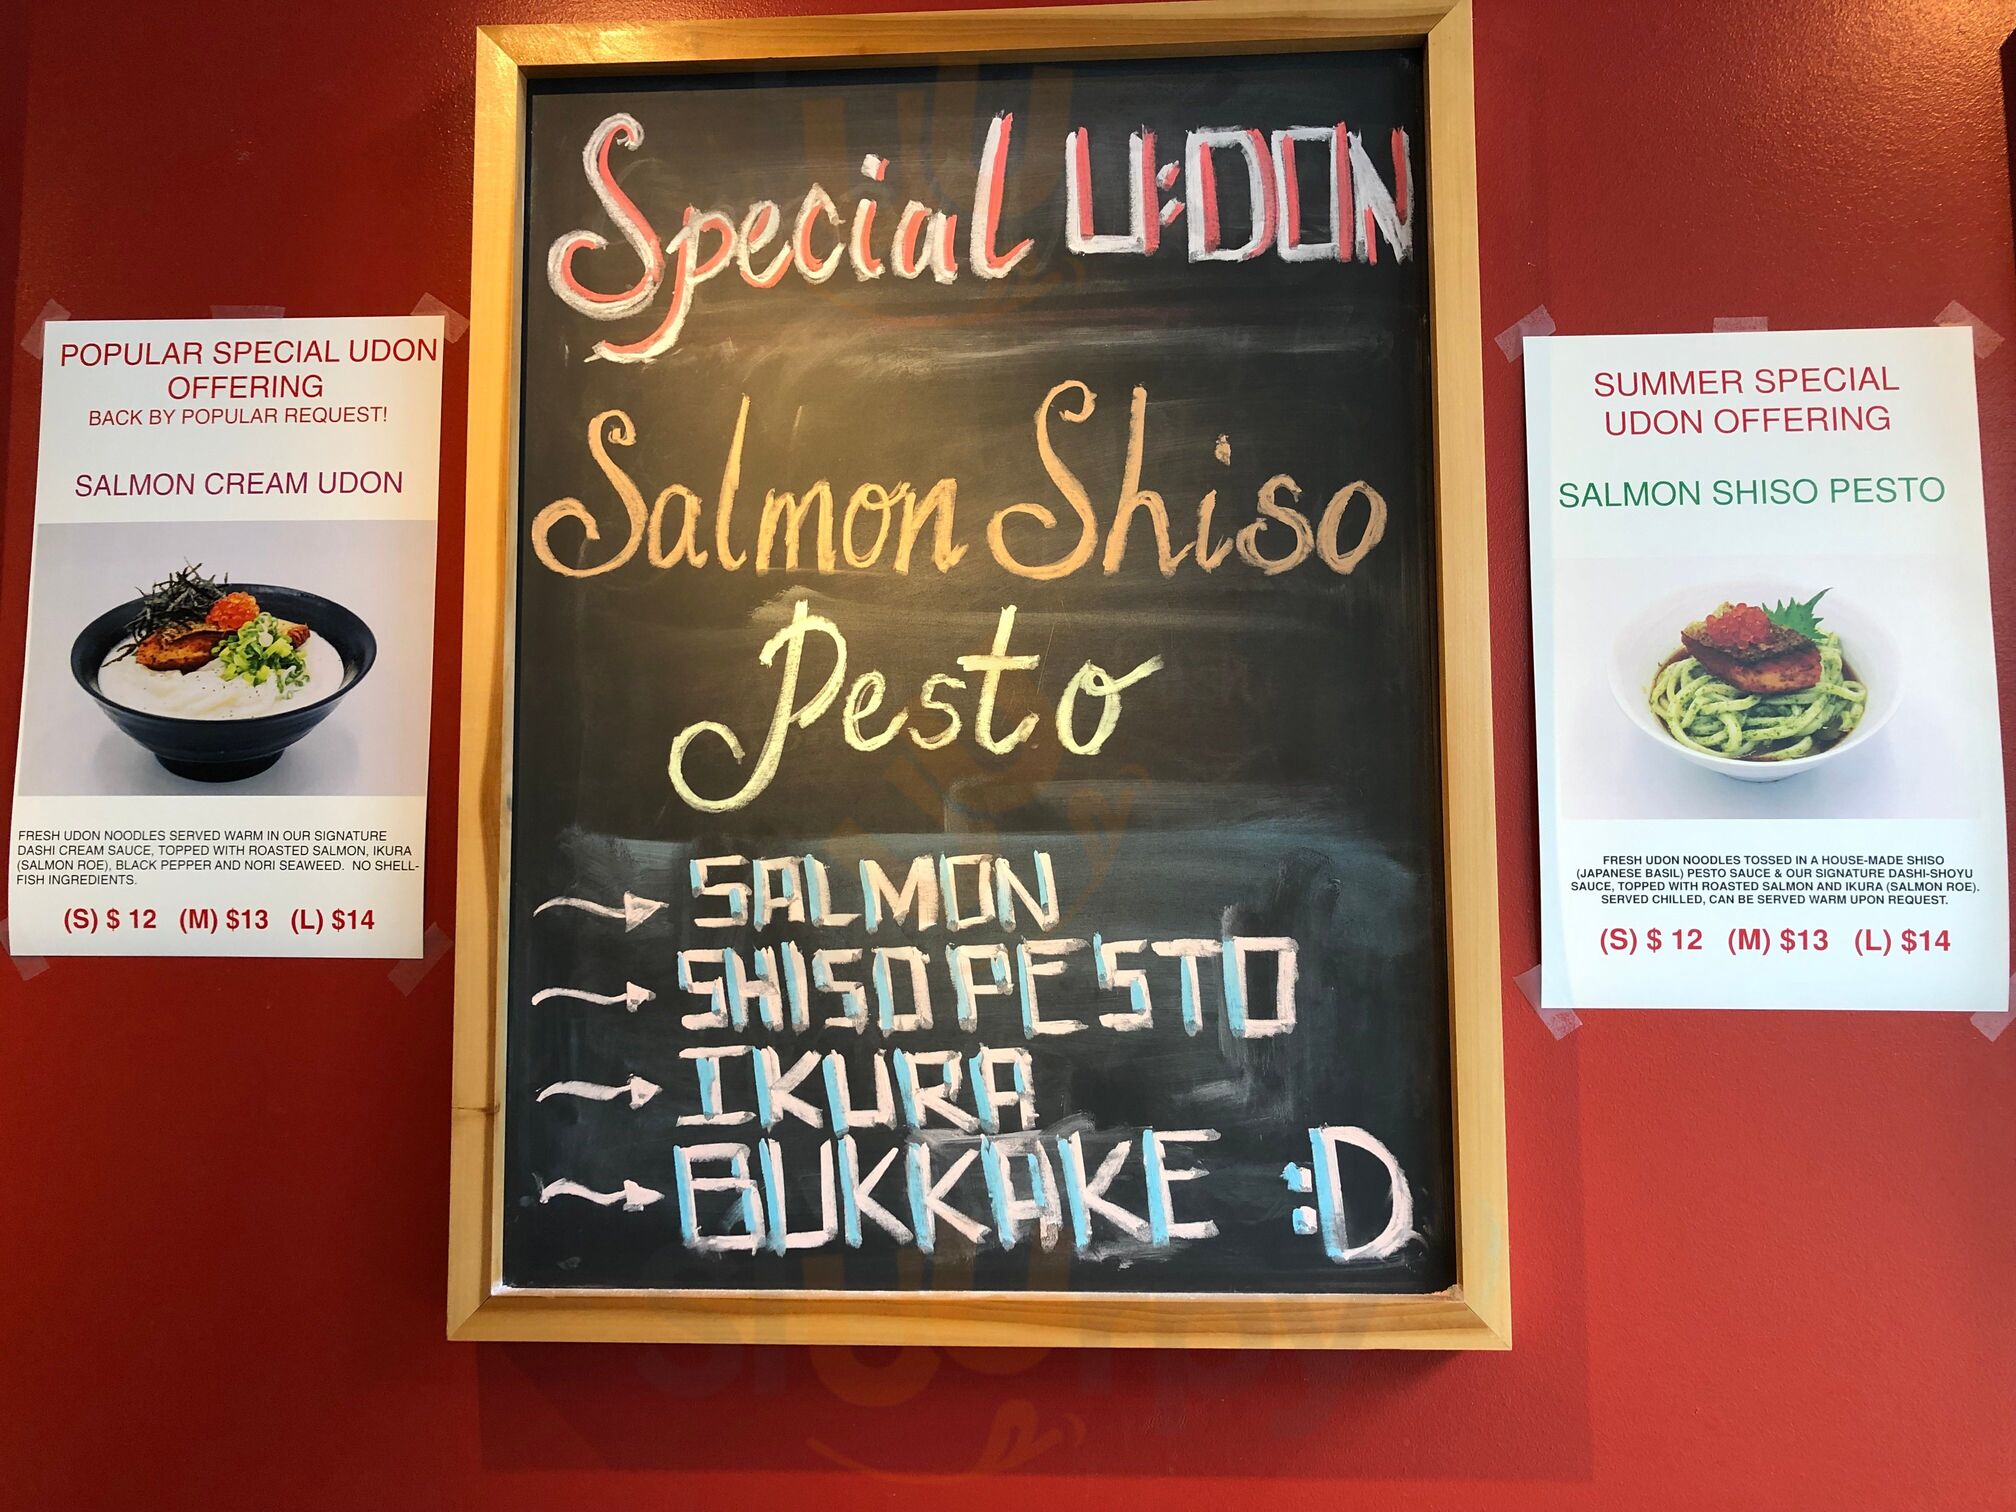 POPULAR SPECIAL UDON
OFFERING
BACK BY POPULAR REQUEST!
SALMON CREAM UDON
FRESH UDON NOODLES SERVED WARM IN OUR SIGNATURE
DASHI CREAM SAUCE, TOPPED WITH ROASTED SALMON, IKURA
(SALMON ROE), BLACK PEPPER AND NORI SEAWEED. NO SHELL-
FISH INGREDIENTS.
(S) $ 12 (M) $13 (L) $14
Special U:DON
Salmon Shiso
Pesto
→ SALMON
→ SHISO PESTO
→ IKURA
→ BUKKAKE :D
SUMMER SPECIAL
UDON OFFERING
SALMON SHISO PESTO
FRESH UDON NOODLES TOSSED IN A HOUSE-MADE SHISO
(JAPANESE BASIL) PESTO SAUCE & OUR SIGNATURE DASHI-SHOYU
SAUCE, TOPPED WITH ROASTED SALMON AND IKURA (SALMON ROE).
SERVED CHILLED, CAN BE SERVED WARM UPON REQUEST.
(S) $ 12 (M) $13 (L) $14